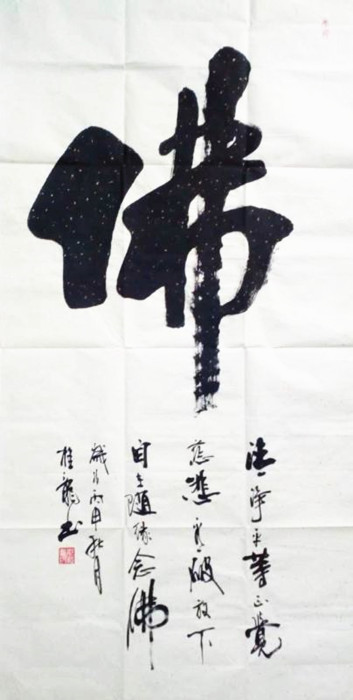 佛
清净平等正覺
慈悲看破放下
自在隨缘念佛
歲次丙申秋月
桂龍书